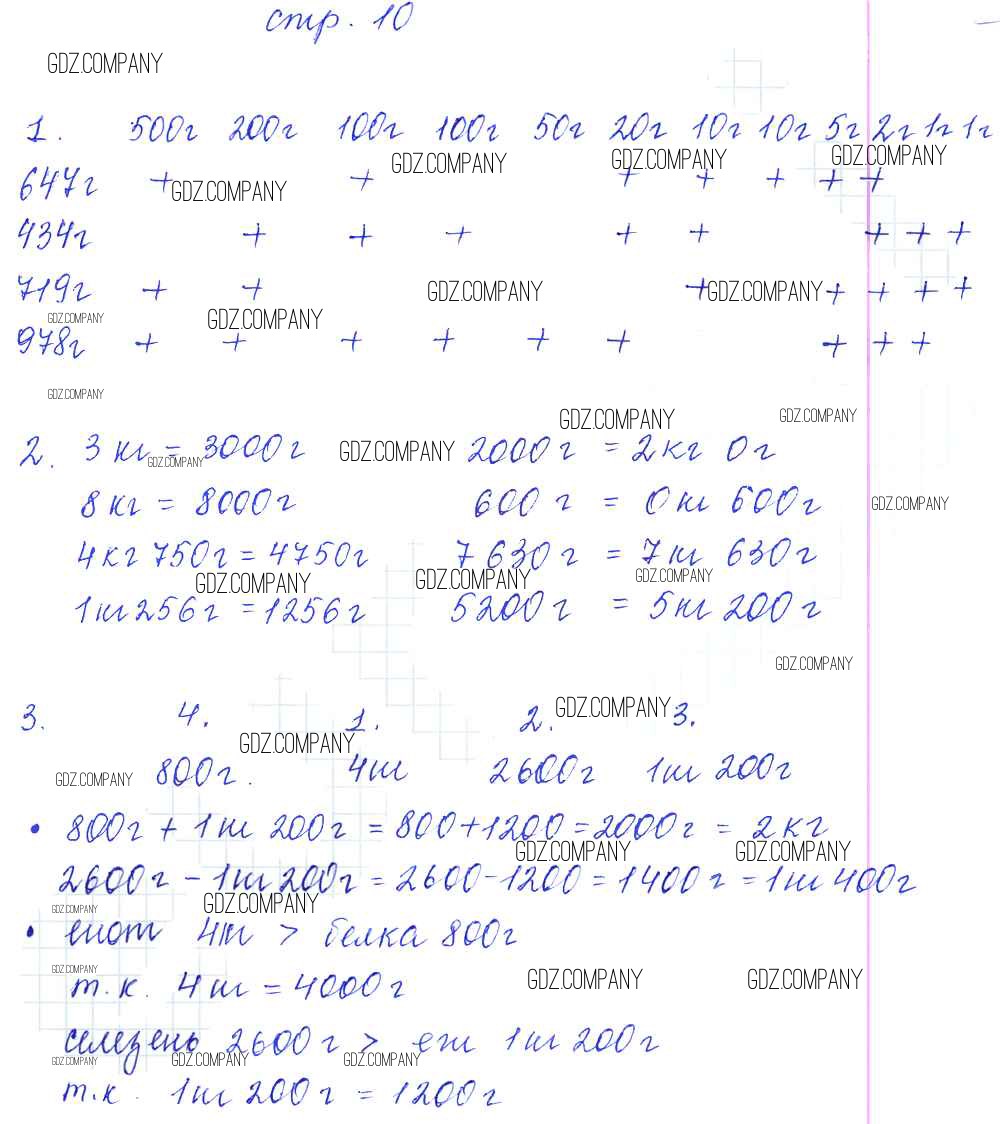 стр. 10
GDZ.COMPANY
1. 500г 200г 100г 100г 50г 20г 10г 10г 5г 2г 1г 1г
GDZ.COMPANY GDZ.COMPANY GDZ.COMPANY
647г + + + + + + +
GDZ.COMPANY
434г + + + + + + + +
719г + + + + + + +
GDZ.COMPANY GDZ.COMPANY
GDZ.COMPANY GDZ.COMPANY
978г + + + + + + + + +
GDZ.COMPANY
GDZ.COMPANY GDZ.COMPANY
2. 3 кг = 3000г 2000г = 2кг 0г
GDZ.COMPANY GDZ.COMPANY
8 кг = 8000г 600 г = 0 кг 600г
GDZ.COMPANY
4кг 750г = 4750г 7 630 г = 7 кг 630г
GDZ.COMPANY GDZ.COMPANY GDZ.COMPANY
1кг 256г = 1256г 5200г = 5кг 200г
GDZ.COMPANY
3. 4. 1. 2. 3.
GDZ.COMPANY GDZ.COMPANY
800г. 4кг 2600г 1кг 200г
GDZ.COMPANY
• 800г + 1 кг 200г = 800+1200=2000г = 2кг
GDZ.COMPANY GDZ.COMPANY
2600г - 1кг 200г = 2600-1200 = 1400г = 1кг 400г
GDZ.COMPANY GDZ.COMPANY
• енот 4кг > белка 800г
GDZ.COMPANY GDZ.COMPANY GDZ.COMPANY
т.к. 4 кг = 4000г
селезень 2600г > еж 1кг 200г
GDZ.COMPANY GDZ.COMPANY GDZ.COMPANY
т.к. 1кг 200г = 1200г